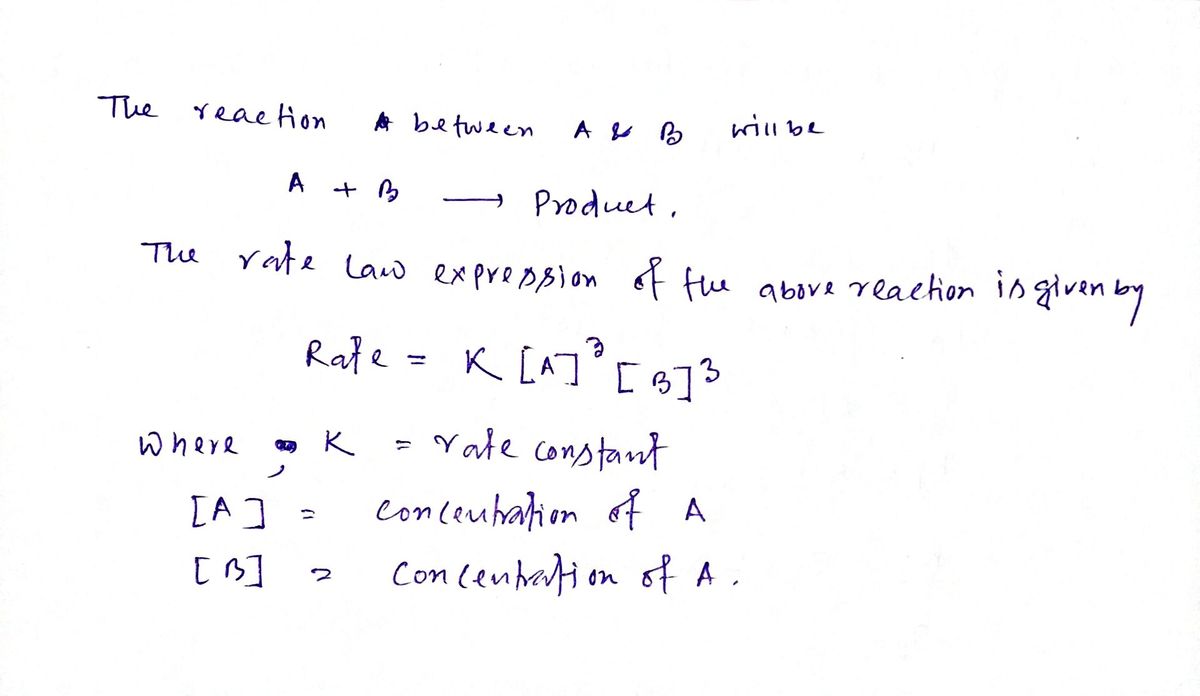 The reaction between A & B will be
A + B ⟶ Product.
The rate law expression of the above reaction is given by
Rate = K [A]² [B]³
where, K = rate constant
[A] = concentration of A
[B] = concentration of A.